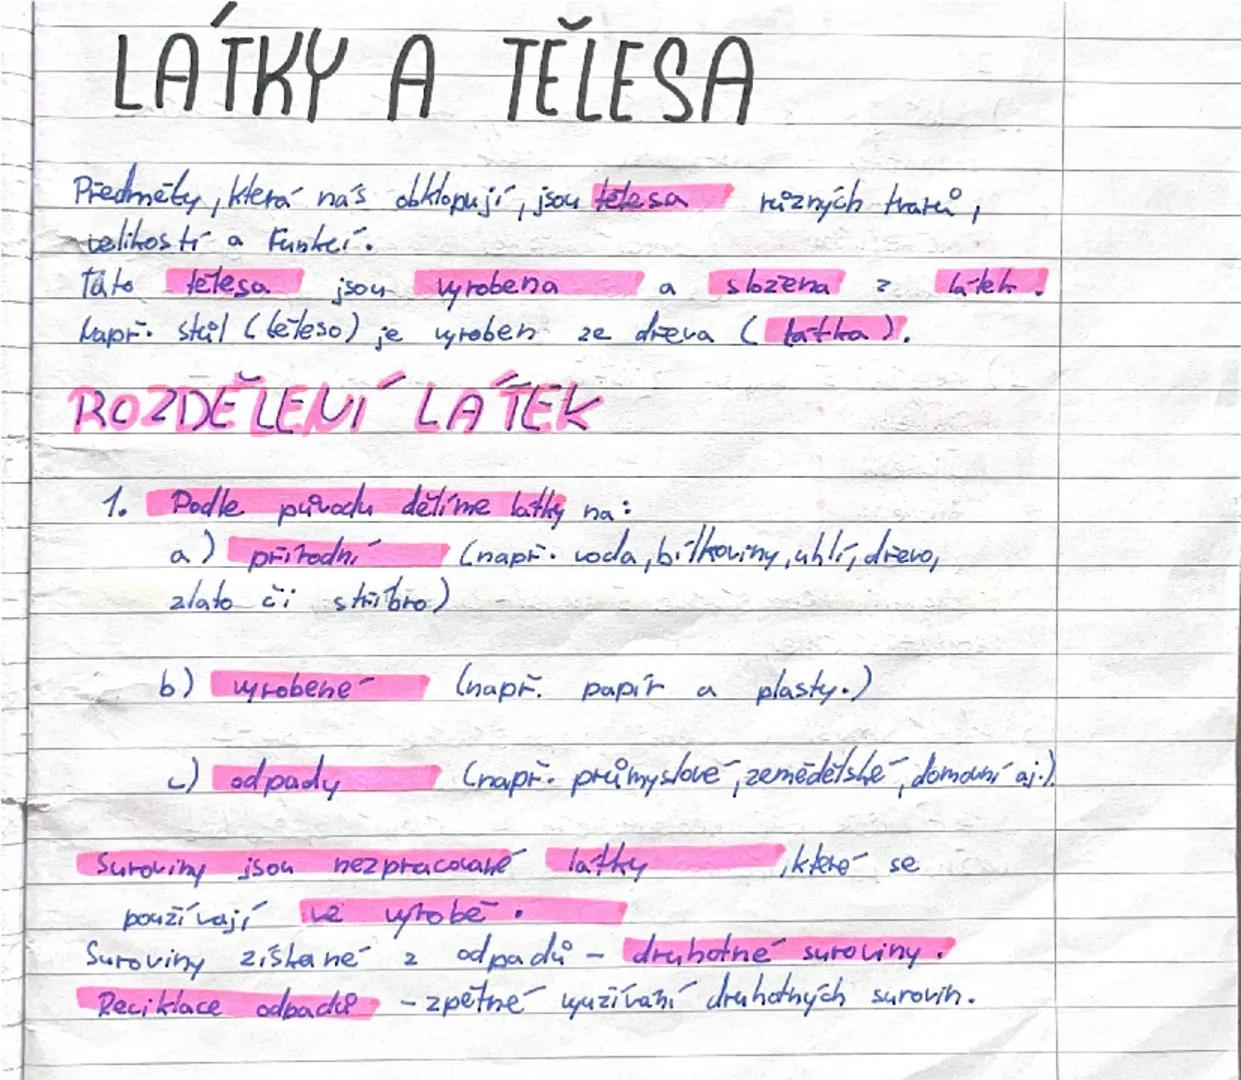 LÁTKY A TĚLESA
Předměty, která nás obklopují, jsou tělesa různých tvarů,
velikostí a funkcí.
Tato tělesa jsou vyrobena a složena z látek.
Např. stůl (těleso) je vyroben ze dřeva (látka).
ROZDĚLENÍ LÁTEK
1. Podle původu dělíme látky na:
a) přírodní (např. voda, bílkoviny, uhlí, dřevo,
zlato či stříbro)
b) vyrobené (např. papír a plasty.)
c) odpady (např. průmyslové, zemědělské, domovní aj.).
Suroviny jsou nezpracované látky, které se
používají ve výrobě.
Suroviny získané z odpadů - druhotné suroviny.
Reciklace odpadů - zpětné využívání druhotných surovin.